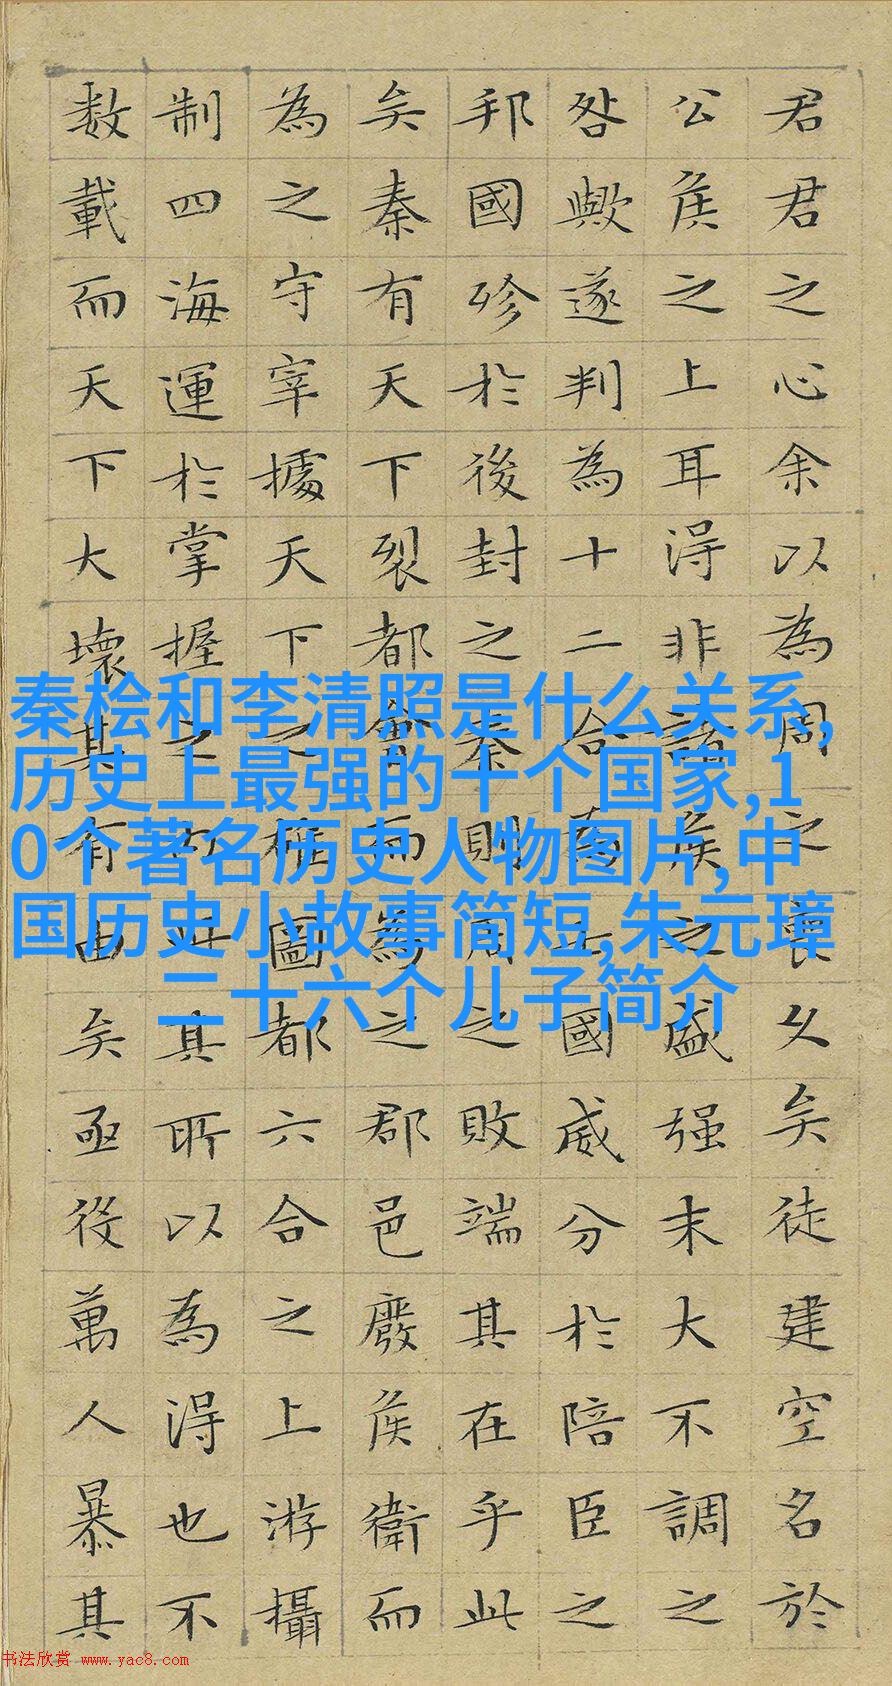 君君之心余以為周之喪久矣徒建空名於
公侯之上耳得非諸侯之盛强末大不調之
咎歟遂判為十二合為七國威分於陪臣之
邦國殄於後封之秦則周之敗端其在乎此
矣秦有天下裂都會而為之郡邑廢侯衛而
為之守宰據天下之雄圖都六合之上游攝
制四海運於掌握之內此其所以為得也不
数載而天下大壞其有由矣亟役萬人暴其
秦桧和李清照是什么关系,
历史上最强的十个国家,1
0个著名历史人物图片,中
国历史小故事简短,朱元璋
二十六个儿子简介
书法欣赏 www.yac8.com